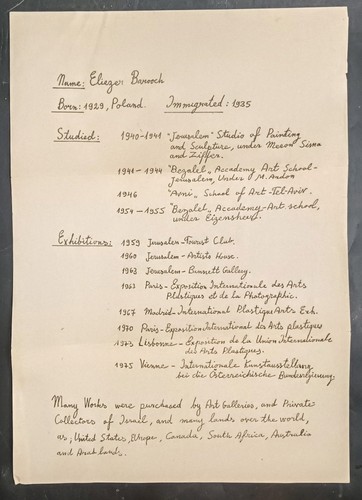 Name: Eliezer Barooch
Born: 1929, Poland. Immigrated: 1935
Studied: 1940-1941 "Jerusalem" Studio of Painting
and Sculpture, under Meeow Sima
and Ziffer.
1941-1944 "Bezalel", Accademy Art School-
Jerusalem, Under M. Andow
1946 "Avni", School of Art-Tel-Aviv.
1954-1955 "Bezalel, Accademy-Art school,
under Eizensher.
Exhibitions: 1959 Jerusalem-Tourist Club.
1960 Jerusalem-Artists House.
1963 Jerusalem- Gallery.
1963 Paris-Exposition Internationale des Arts
Plastiques et de la Photographic.
1967 Madrid-International Plastique Arts Exh.
1970 Paris-Exposition International des Arts plastiques
1973 Lisbonne-Exposition de la Union Internationale
des Arts Plastiques.
1975 Vienne-Internationale Kunstausstellung
bie die Österreichische Bundes
Many Works were purchased by Art Galleries, and Private
Collectors of Israel, and many lands over the world,
as; United States, Canada, South Africa, Australia
and Arab lands.